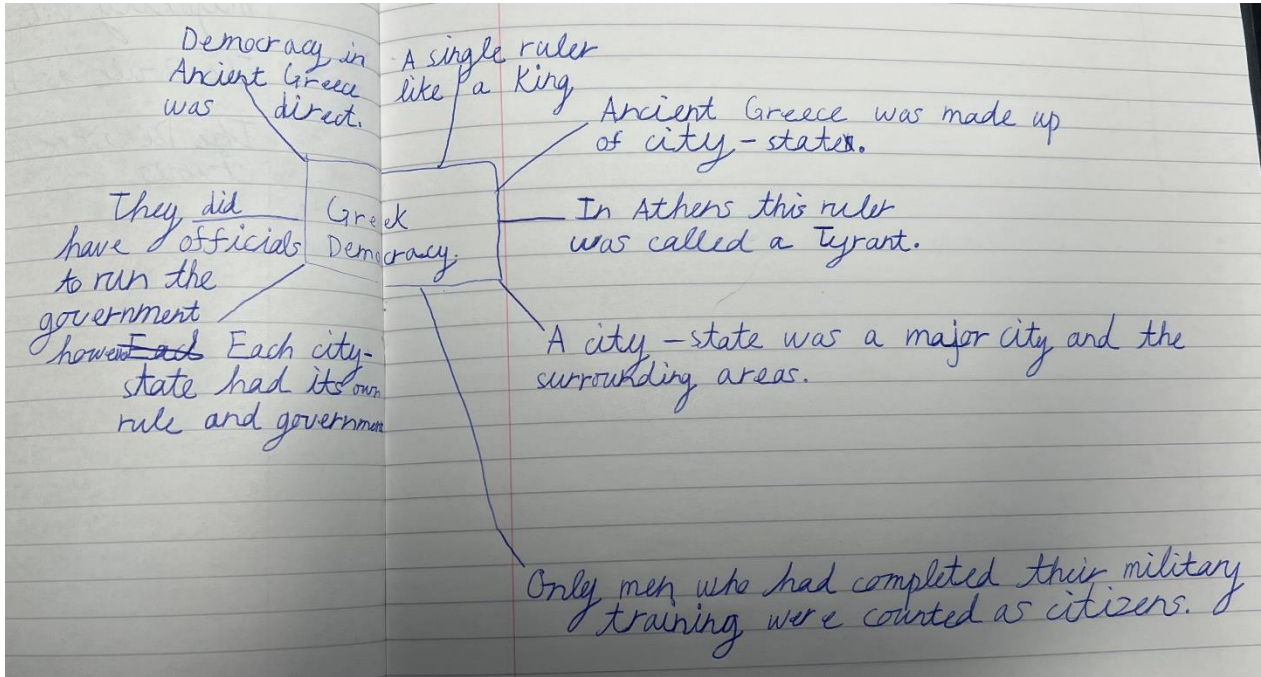 Democracy in
Ancient Greece
was direct.
A single ruler
like a King
Ancient Greece was made up
of city-states.
They did
have officials
to run the
government
however
Greek
Democracy.
In Athens this ruler
was called a Tyrant.
Each city-
state had its own
rule and government
A city-state was a major city and the
surrounding areas.
Only men who had completed their military
training were counted as citizens.